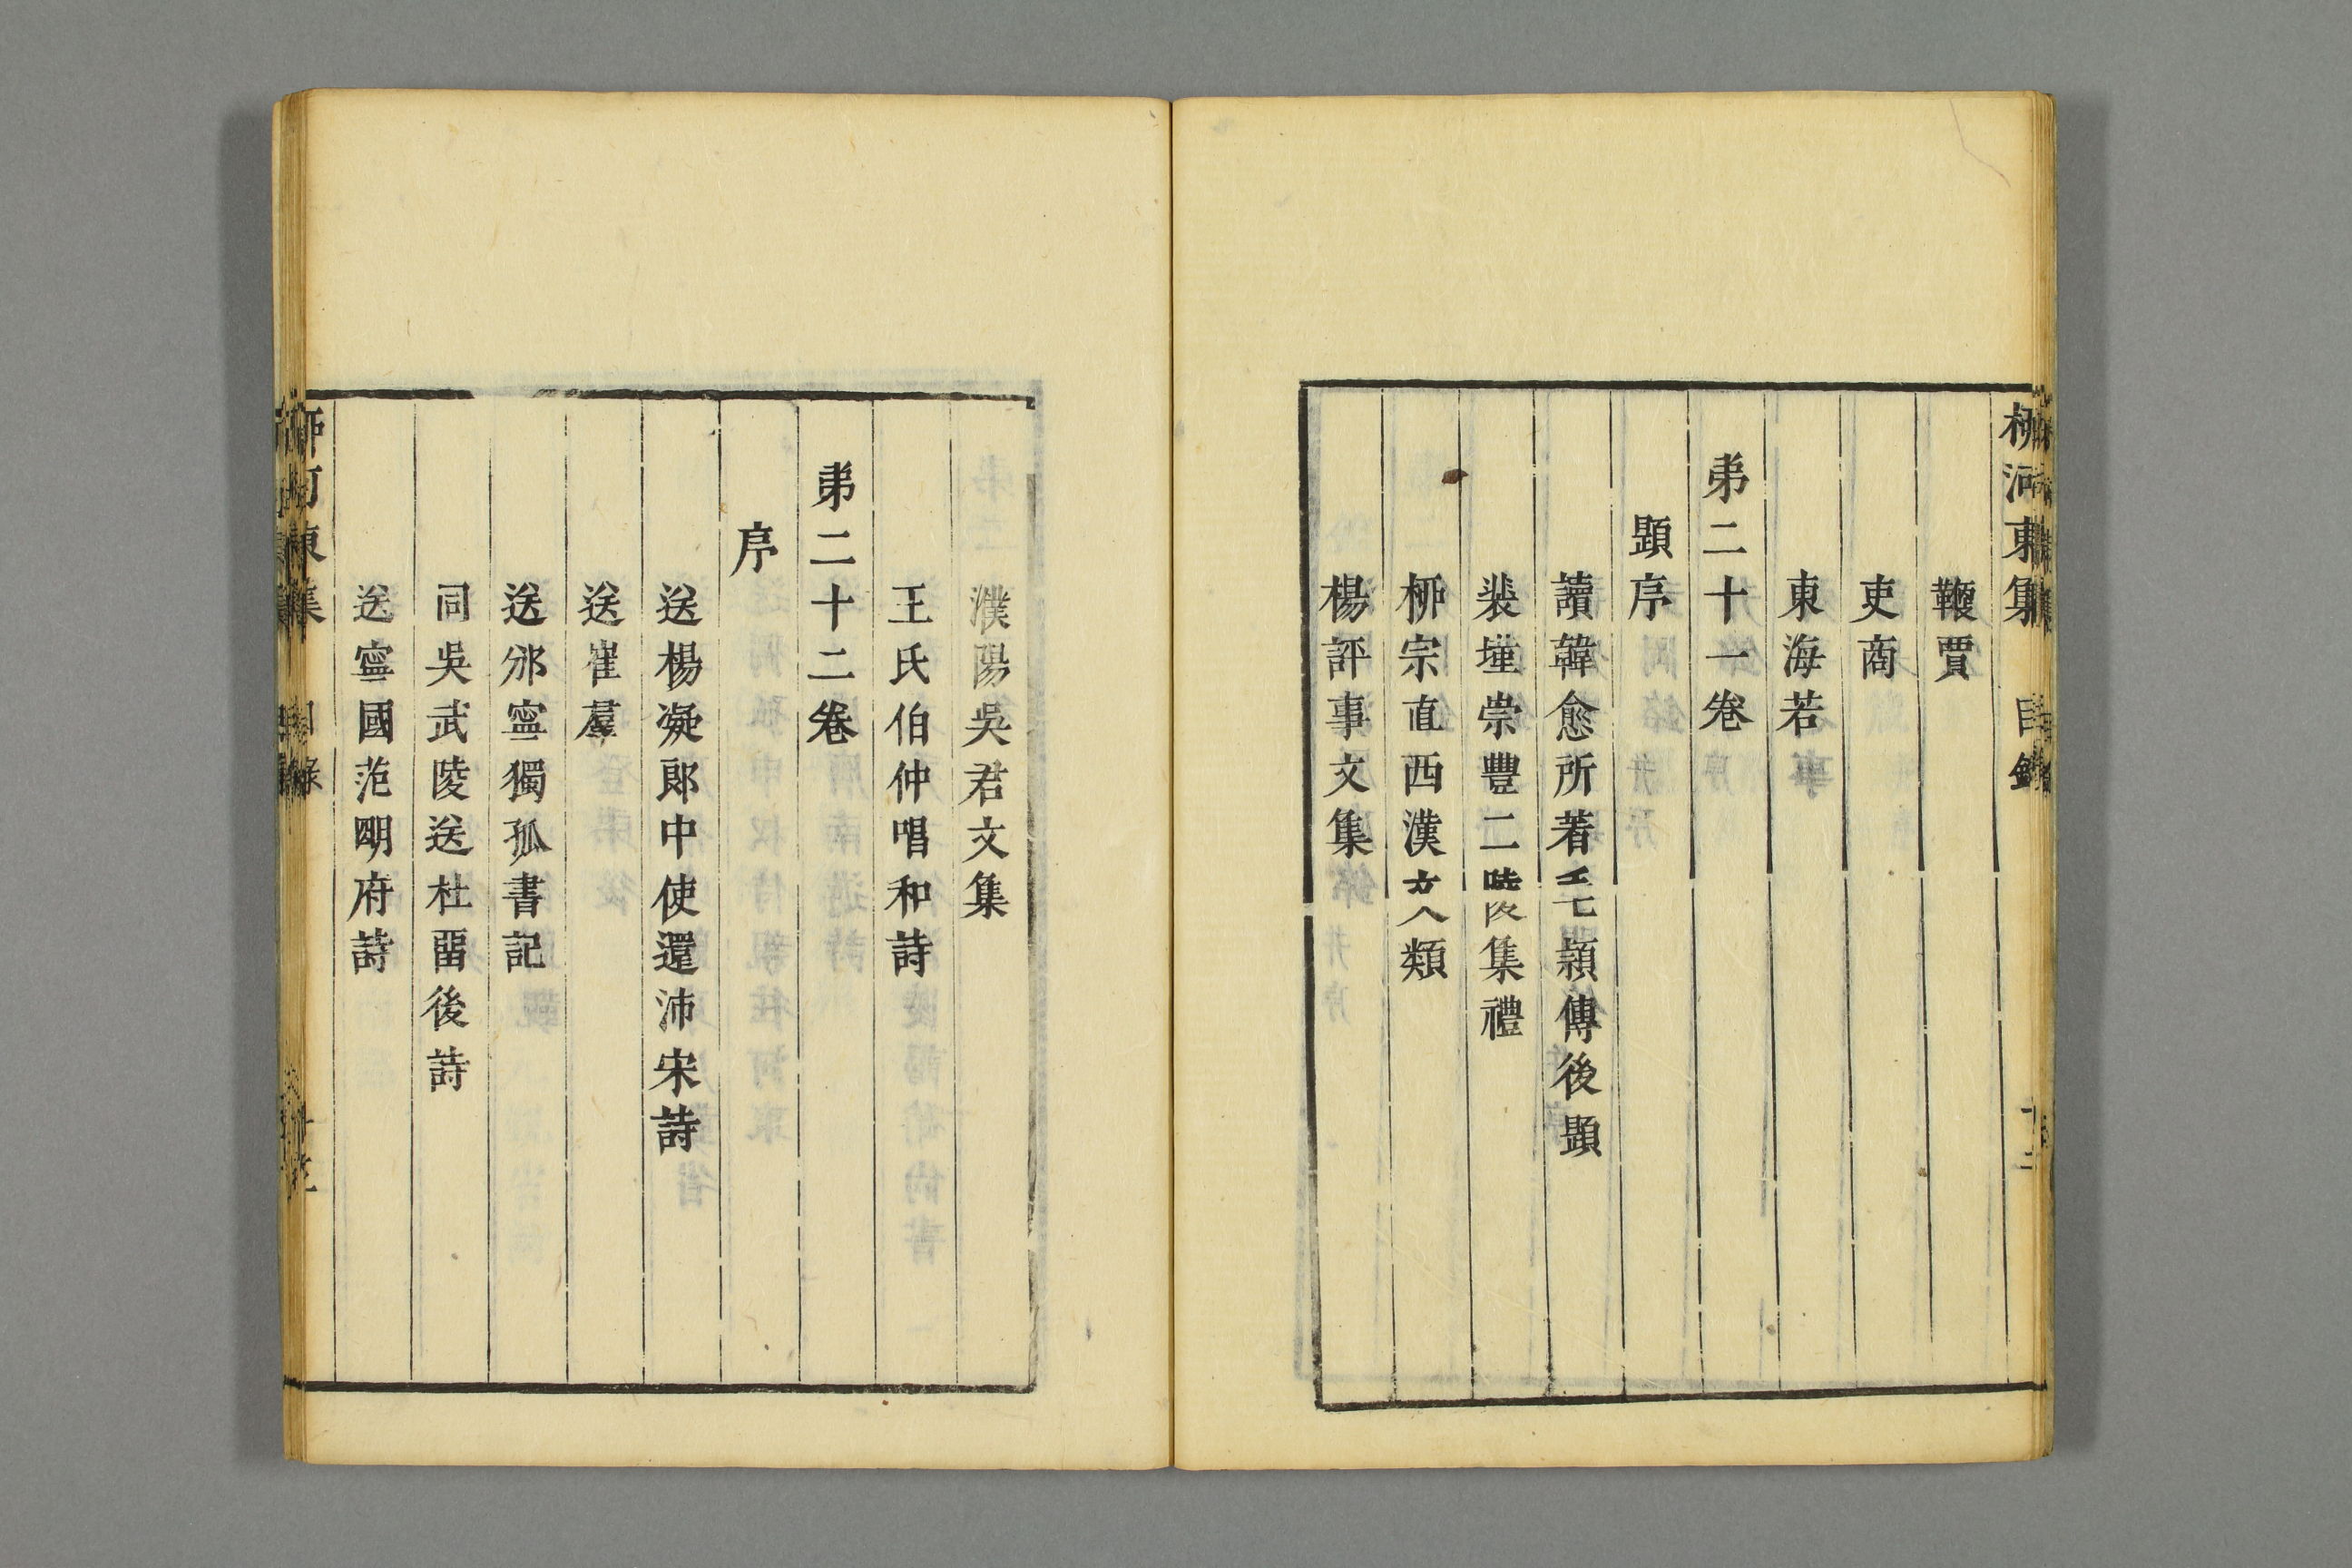 柳河東集 目錄
鞭賈
吏商
東海若
弟二十一卷
題序
讀韓愈所著毛穎傳後題
裴墐崇豐二陵集禮
柳宗直西漢文類
楊評事文集
濮陽吳君文集
王氏伯仲唱和詩
弟二十二卷
序
送楊凝郎中使還沛宋詩
送崔羣
送邠寧獨孤書記
同吳武陵送杜畱後詩
送寧國范明府詩
柳河東集 目錄